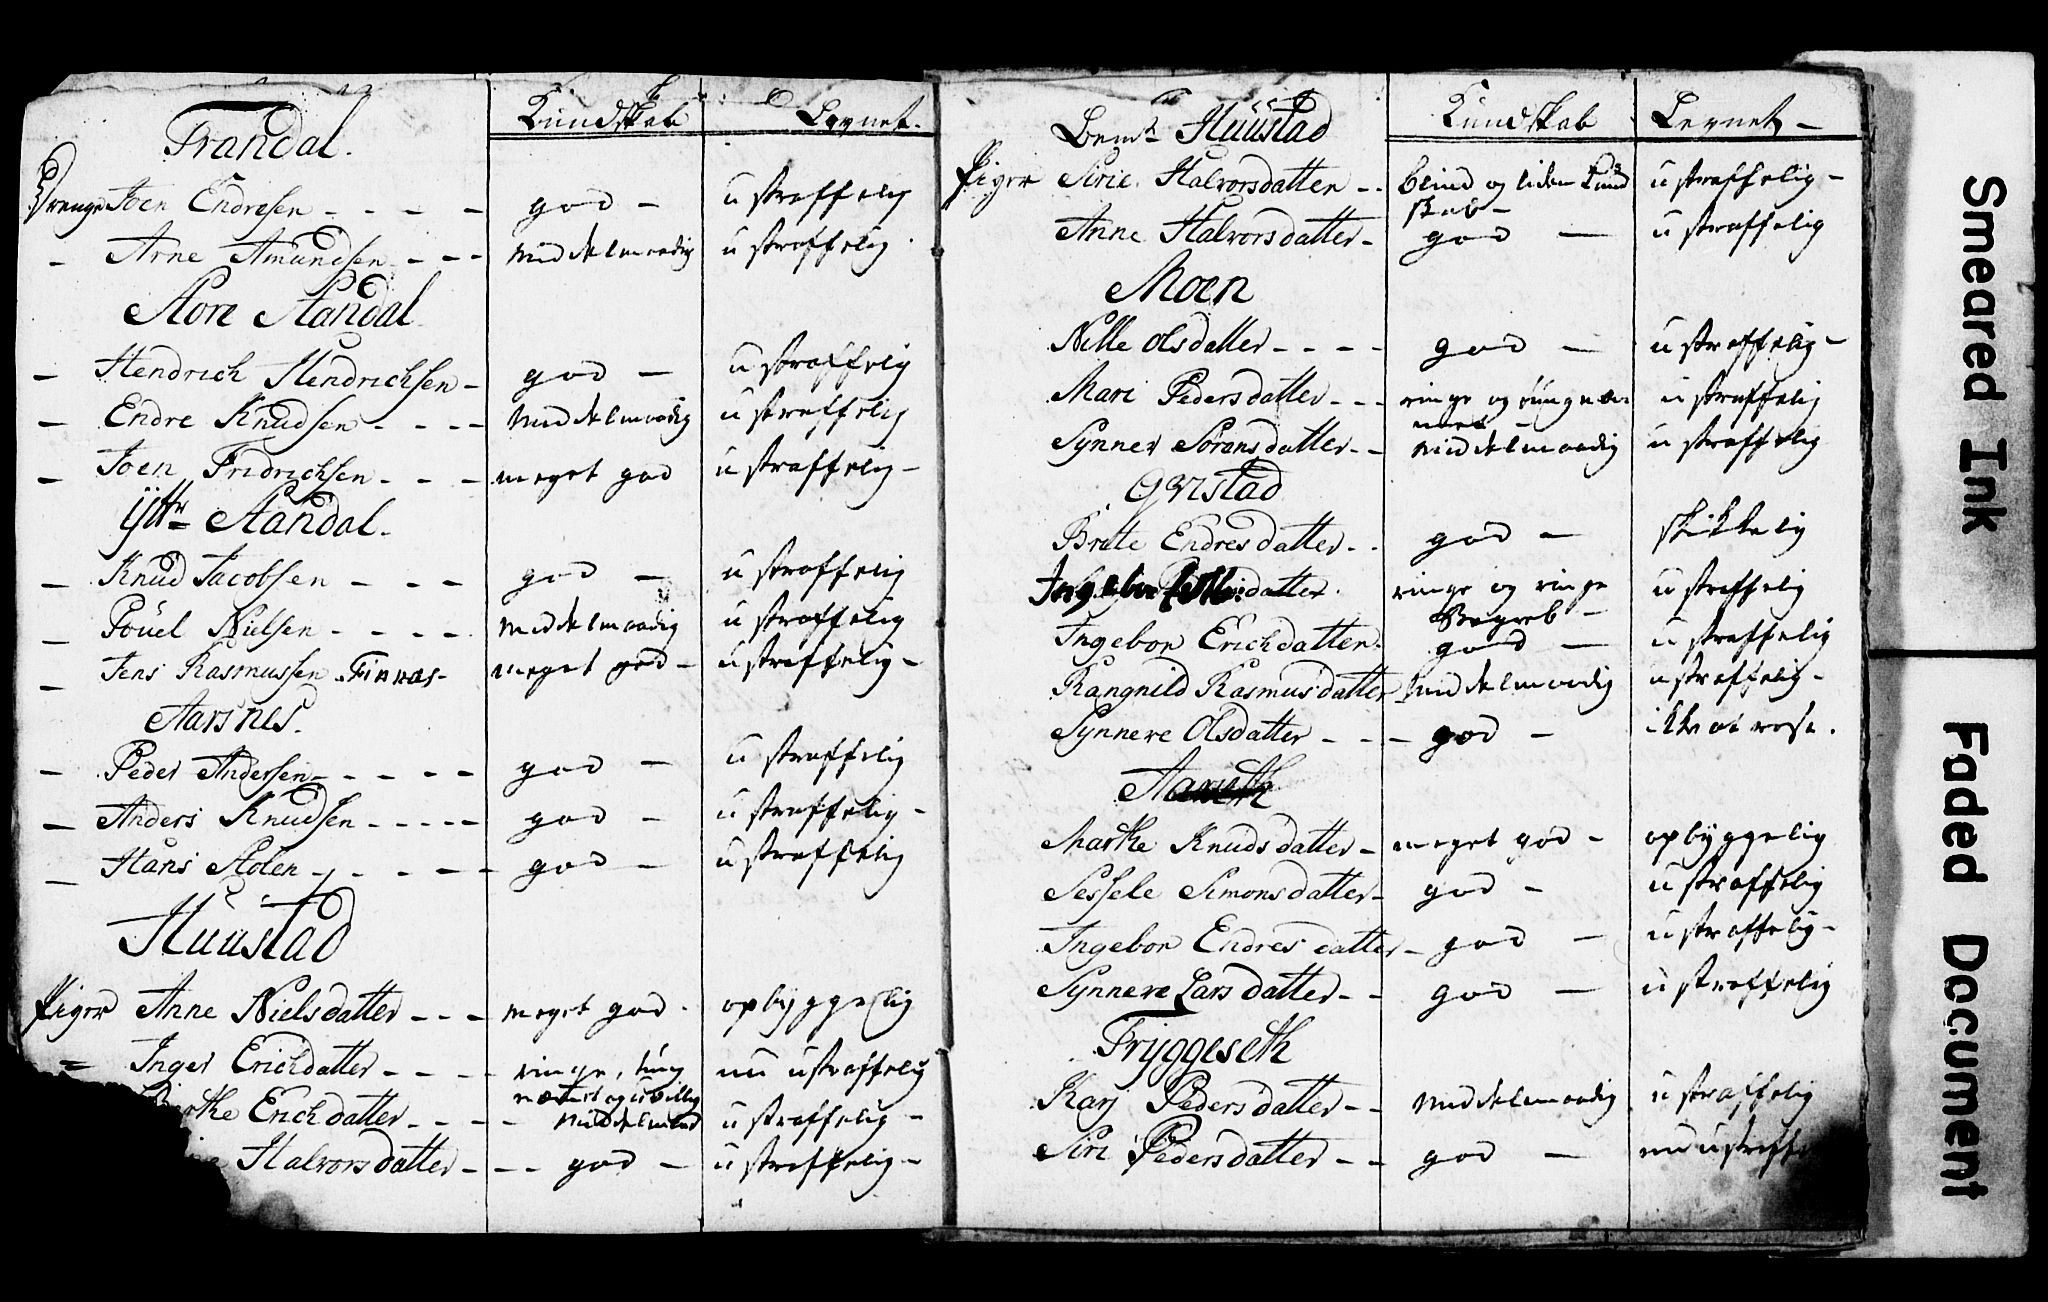 Frandal. Kundskab Levnet.
Drenge Joen Endresen - - - - god - ustraffelig
- Arne Amundsen - - - middelmaadig ustraffelig.
Store Standal
- Hendrich Hendrichsen - god - ustraffelig
- Endre Knudsen - - - - middelmaadig ustraffelig
- Joen Fridrichsen - - - meget god ustraffelig -
Ÿttr Standal.
- Knud Jacobsen - - - god - ustraffelig
- Pouel Nielsen - - - - middelmaadig ustraffelig
- Jens Rasmussen Finnæs - meget god - ustraffelig -
Aarsnes.
- Peder Andersen - - - - - god - ustraffelig
- Anders Knudsen - - - - - god - ustraffelig -
- Hans Stolen - - - - - god - ustraffelig
Huustad
Piger Anne Nielsdatter - - - meget god - opbyggelig
= Inger Erichdatter - - - - ringe, tung nu ustraffelig
nemmet og
Erichdatter - - - - ustraffelig -
Halvorsdatter - - - god - ustraffelig -
Bemt Huustad Kundskab Levnet -
Piger Sirie Halvorsdatter - - blind og liden Kund ustraffelig -
skab -
Anne Halvorsdatter - god - ustraffelig
Moen
Nille Olsdatter - - - - god - ustraffelig -
Mari Pedersdatter - - - ringe og tungnem- ustraffelig
met
Synnev Sørensdatter - - middelmaadig ustraffelig
Brite Endresdatter - - god - skikkelig
datter. ringe og ringe ustraffelig
Begreb -
Ingebor Erichdatter. god - ustraffelig
Rangnild Rasmusdatter middelmaadig ustraffelig -
Synneve Olsdatter - - - god - ikke at rose.
Marthe Knudsdatter - meget god - opbyggelig
Sessele Simonsdatter - god - ustraffelig
Ingebor Endresdatter - god - ustraffelig -
Synneve Larsdatter - - god - ustraffelig
Tryggeseth
Kari Pedersdatter - - middelmaadig ustraffelig
Siri Pedersdatter - - god - nu
Smeared Ink
Faded Document